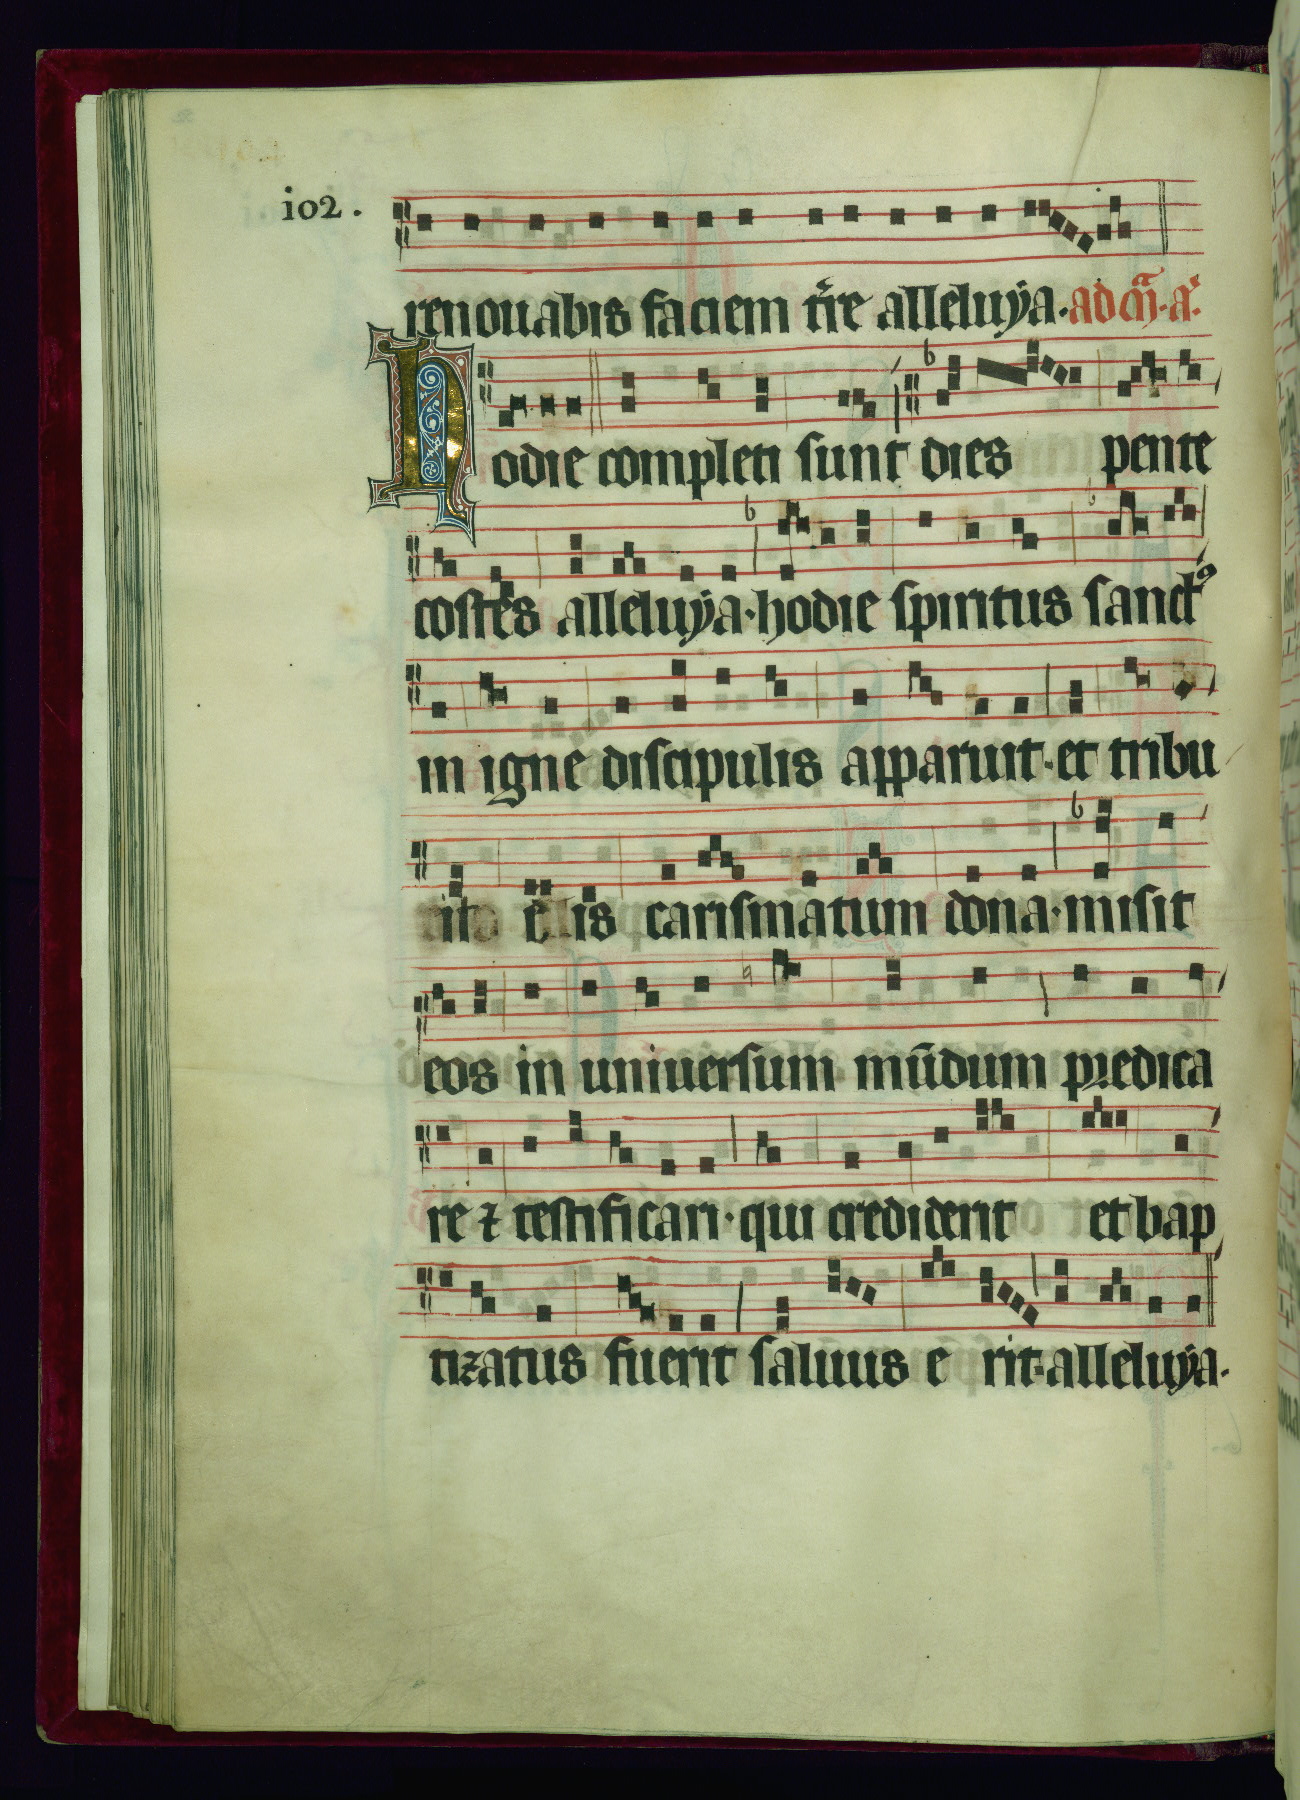 102.
renouabis faciem tr̄e alleluÿa· ad m̄· a·
Hodie completi sunt dies pente
costes alleluÿa· hodie spiritus sanctꝰ
in igne discipulis apparuit· et tribu
it eis carismatum dona· misit
eos in uniuersum mūdum predica
re ⁊ testificari· qui crediderit et bap
tizatus fuerit saluus e rit· alleluÿa·